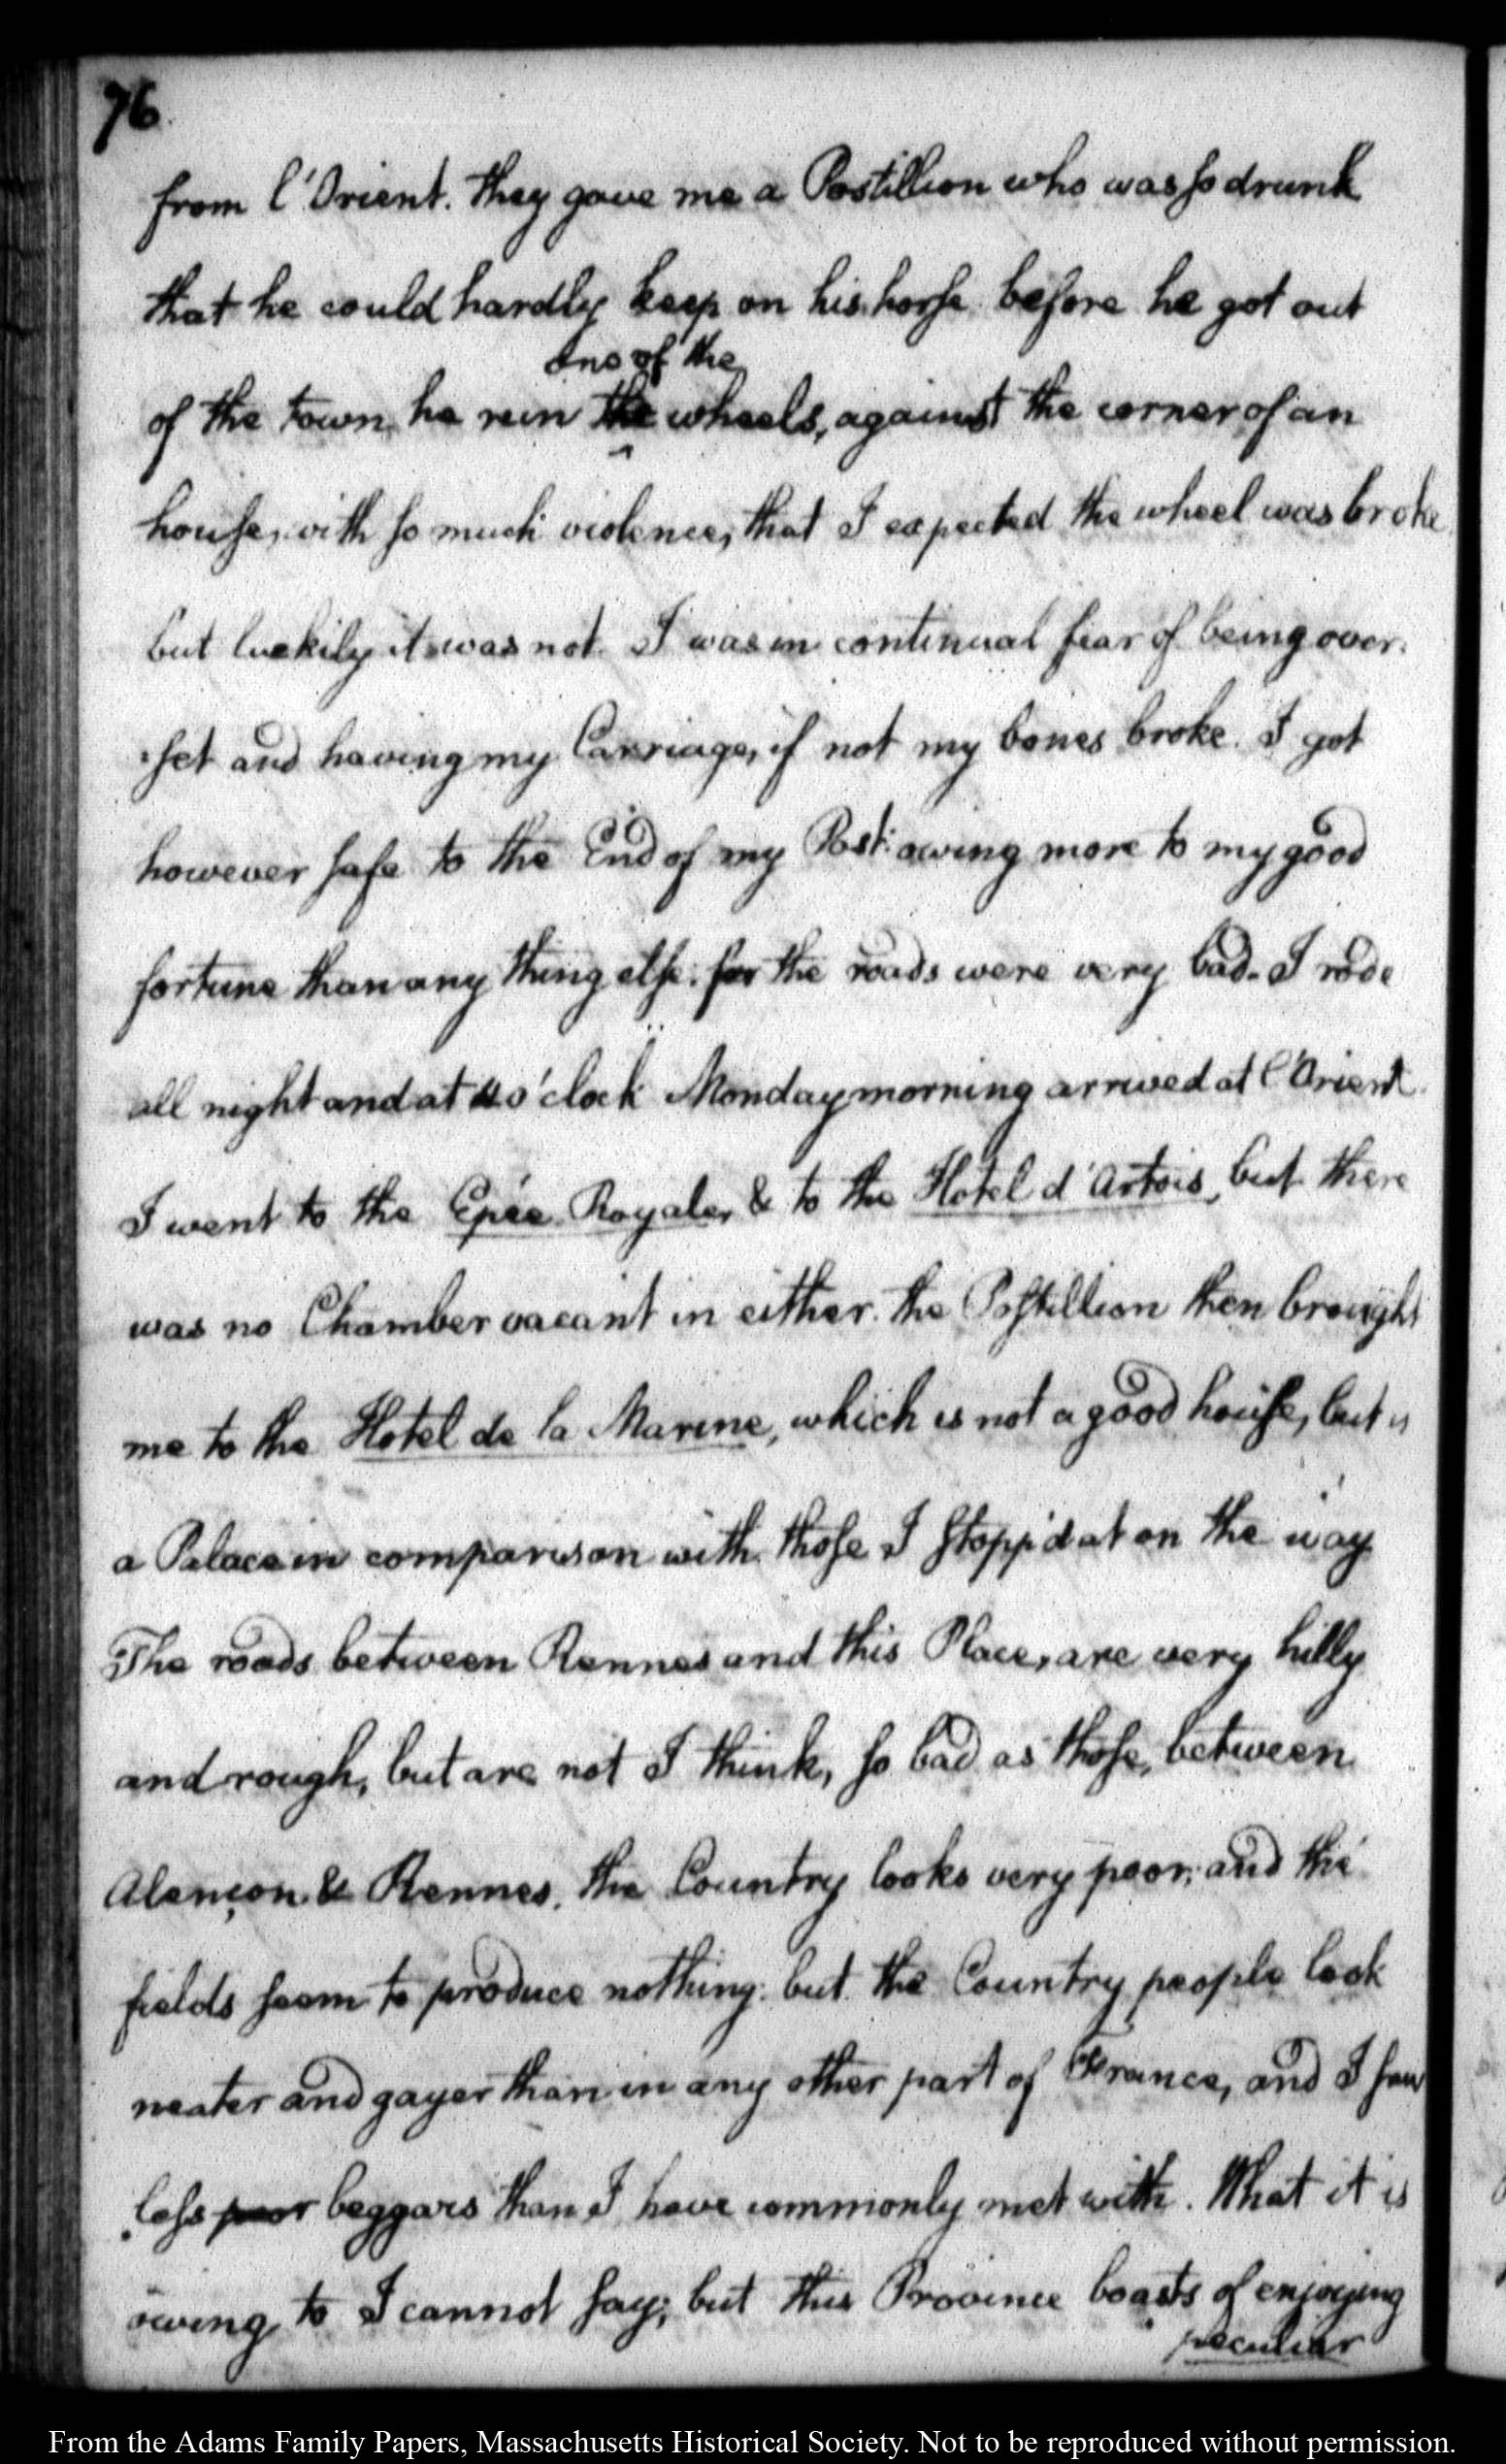 76
from l'Orient. they gave me a Postillion who was so drunk
that he could hardly keep on his horse. before he got out
one of the
of the town he run the wheels, against the corner of an
house, with so much violence, that I expected the wheel was broke
but luckily it was not. I was in continual fear of being over-
-set and having my Carriage, if not my bones broke. I got
however safe to the End of my Post: owing more to my good
fortune than any thing else: for the roads were very bad. I rode
all night and at 4 o'clock Monday morning arrived at l'Orient.
I went to the Epée Royale, & to the Hotel d'Artois, but there
was no Chamber vacant in either. the Postillion then brought
me to the Hotel de la Marine, which is not a good house, but is
a Palace in comparison with those I stopp'd at on the way.
The roads between Rennes and this Place, are very hilly
and rough, but are not I think, so bad as those, between
Alençon & Rennes. the Country looks very poor; and the
fields seem to produce nothing: but the Country people look
neater and gayer than in any other part of France, and I saw
less poor beggars than I have commonly met with. What it is
owing to I cannot say; but this Province boasts of enjoying
peculiar
From the Adams Family Papers, Massachusetts Historical Society. Not to be reproduced without permission.